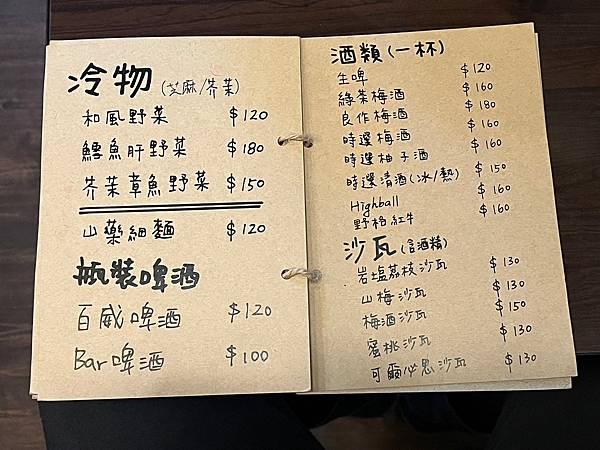 冷物 (芝麻/芥茉)
和風野菜 $120
鱈魚肝野菜 $180
芥茉章魚野菜 $150
山藥細麵 $120
瓶裝啤酒
百威啤酒 $120
Bar啤酒 $100
酒類(一杯)
生啤 $120
綠茶梅酒 $160
良作梅酒 $180
時選梅酒 $160
時選柚子酒 $160
時選清酒(冰/熱) $150
Highball $160
野格紅牛 $160
沙瓦(含酒精)
岩塩荔枝沙瓦 $130
山梅沙瓦 $130
梅酒沙瓦 $150
蜜桃沙瓦 $130
可爾必思沙瓦 $130